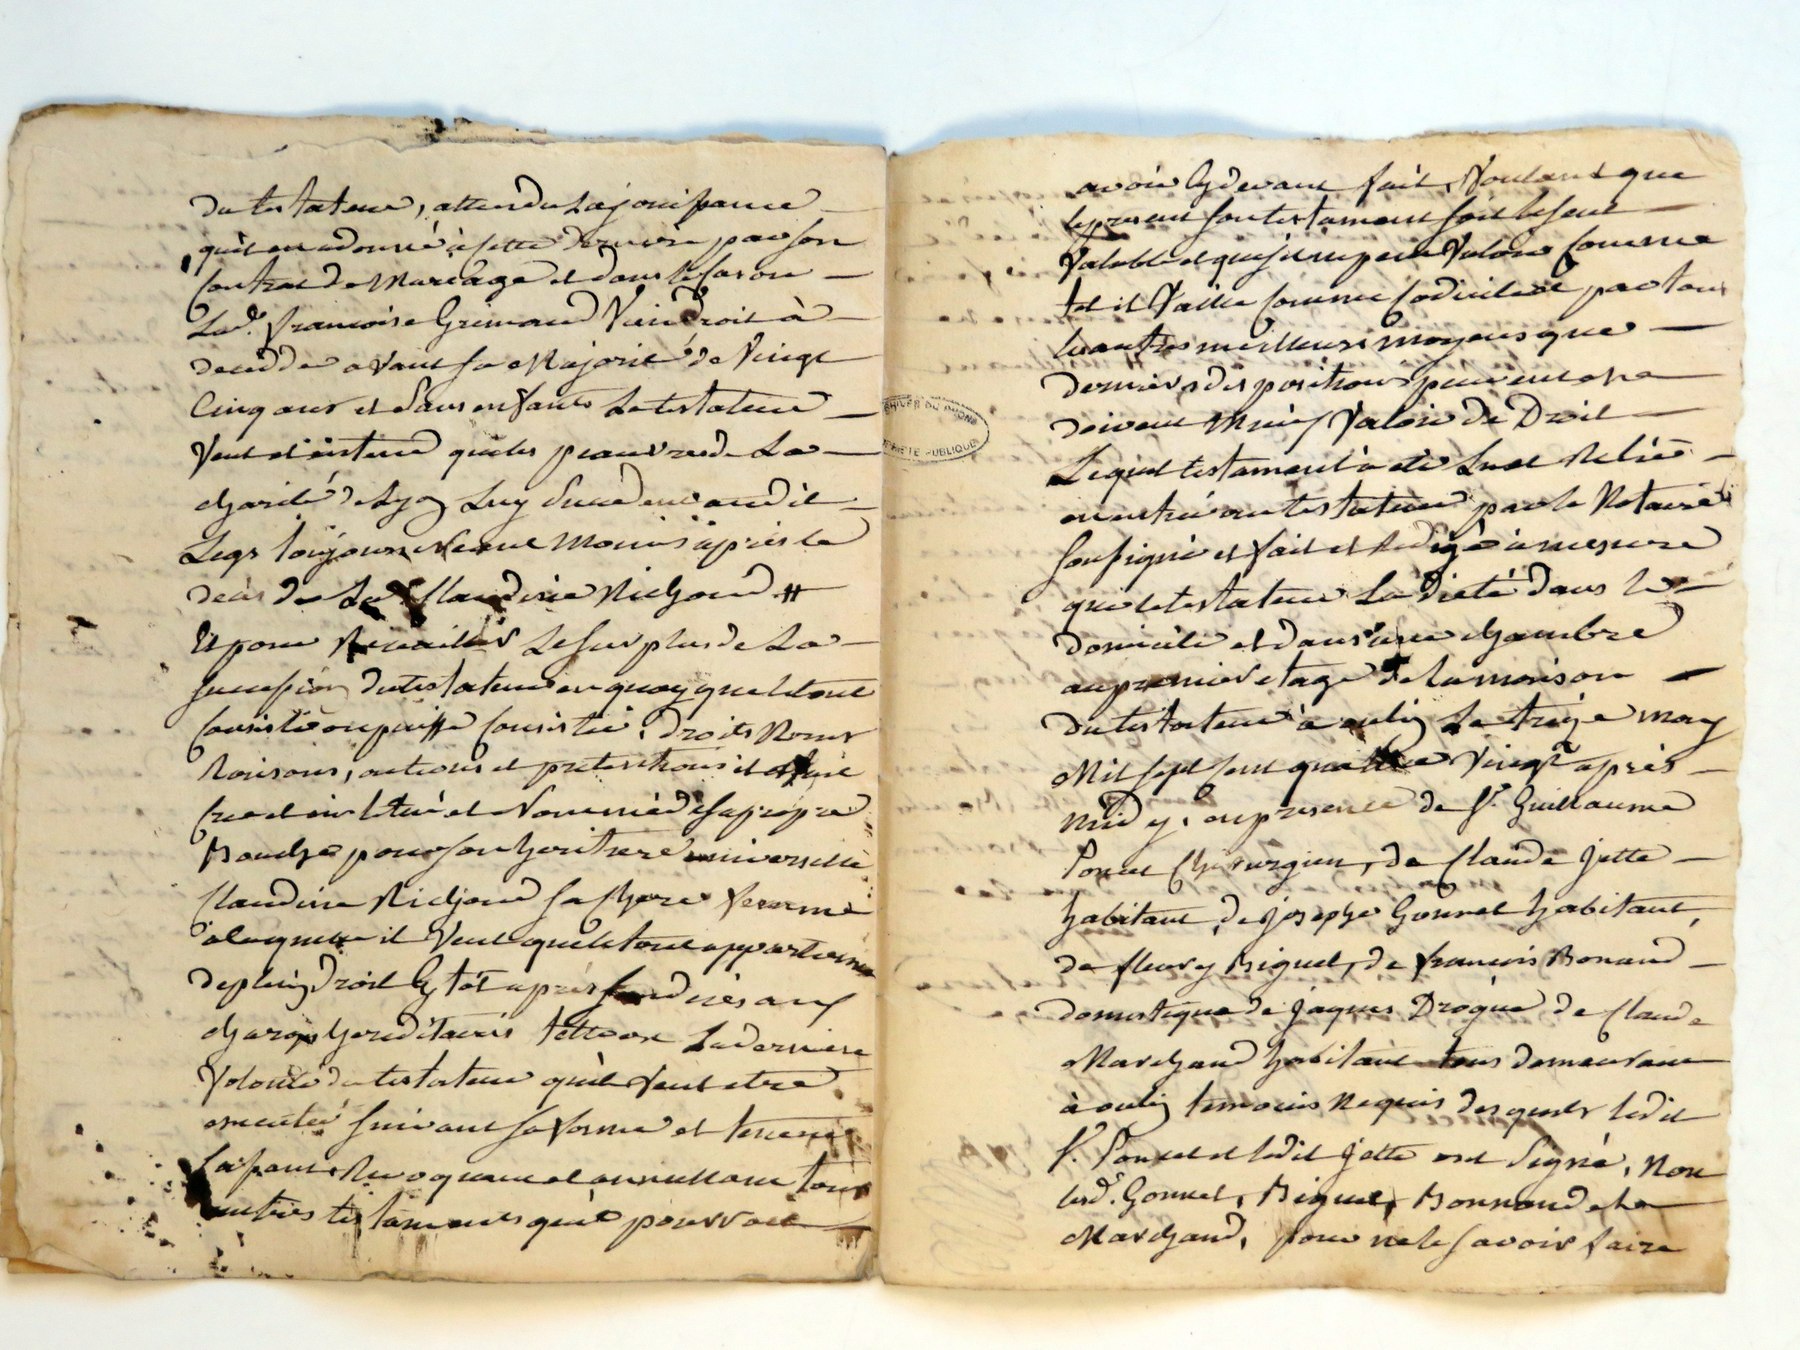 du testateur, attendu la jouissance
qu'il en a donné à cette derniere par son
Contrat de Mariage et dans le cas ou
Lad.e francoise Grimaud Viendroit à
deceder avant sa Majorité de Vingt
Cinq ans et sans enfants Le testateur
Veut et entend que les pauvres de La
charité de Lyon Luy Succedent audit
Legs toujours neanmoins après le
decès de La.d. Claudine Richoud #
Et pour Recueillir Le surplus de La
succession du testateur en quoy que le tout
Consiste ou puisse Consister, droits Noms
Raisons, actions et pretentions il a fait
créé et institué et Nommé de sa propre
Bouche pour son heritiere universelle
Claudine Richoud sa Chere femme
a laquelle il Veut que le tout appartienne
de plein Droit sy tôt après son decès aux
charges hereditaires telle est La derniere
Volonté du testateur qu'il Veut etre
executée suivant sa forme et teneur
La part Revoquant et annullant tous
autres testaments qu'il pourroit
avoir Cydevant fait, Voulant que
le present son testament soit le seul
Valable et que s'il ne peut Valoir Comme
tel il Vaille comme Codicile et par tous
les autres meilleurs moyens que
dernieres dispositions peuvent et
doivent Mieux Valoir de Droit
Lequel testament à eté Lu et Relu
en entier au testateur par le Notaire
soussigné et fait et Redigé à mesure
que le testateur La dicté dans le
domicile et dans une chambre
au premier etage de la maison
du testateur à oulin Le treize may
Mil sept cent quattre Vingt après
Midy, en presence de Sr. Guillaume
Poncet Chirurgien, de Claude Jette
habitant, de Josephe Gonnet habitant,
de fleury Biguet, de francois Bonand
domestique de Jaques Drogue de Claude
Marchand habitant tous demeurant
à oulin temoins Requis desquels ledit
Sr. Poncet et ledit Jette ont Signé, Non
lesd. Gonnet, Biguet, Bonnand et le
Marchand, pour ne le savoir faire
PROPRIETE PUBLIQUE